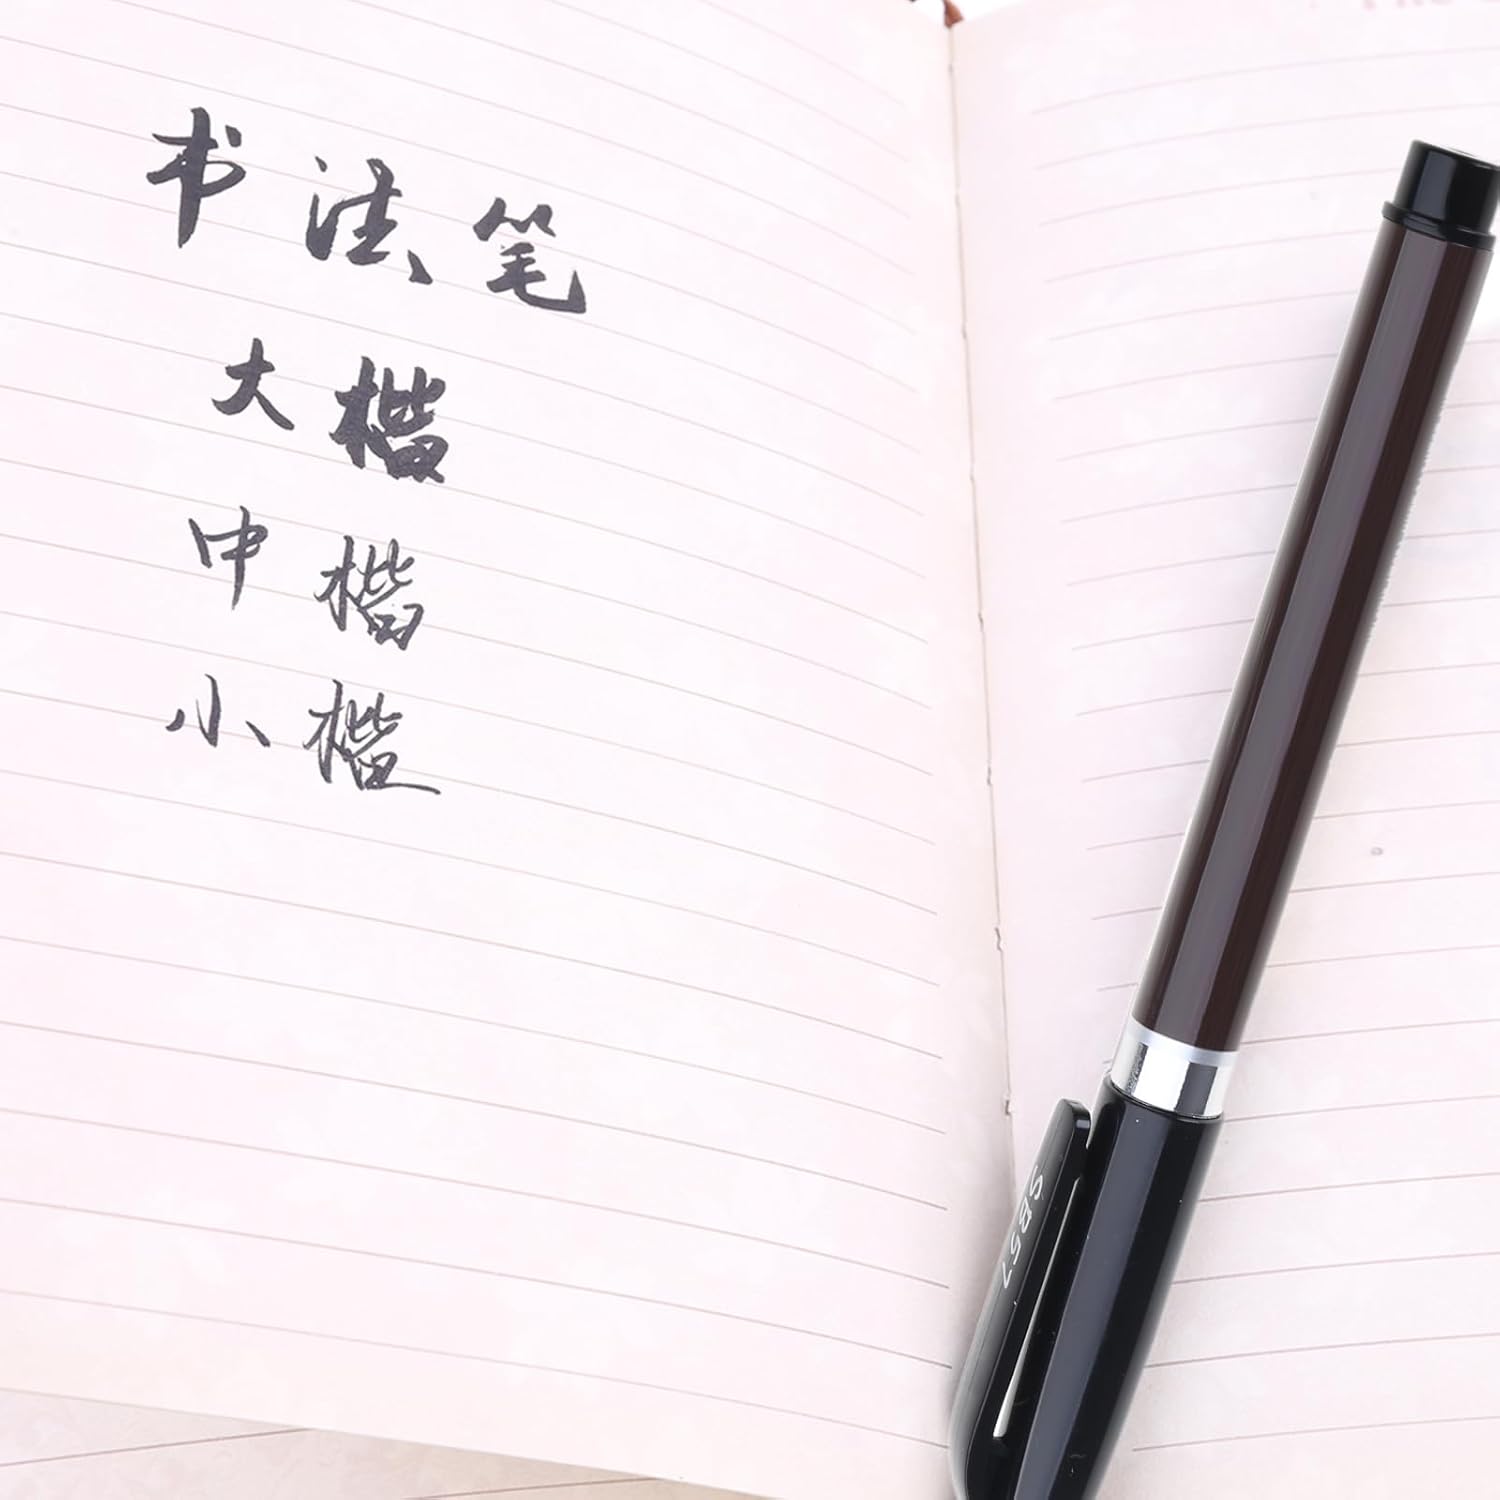 书法笔
大楷
中楷
小楷